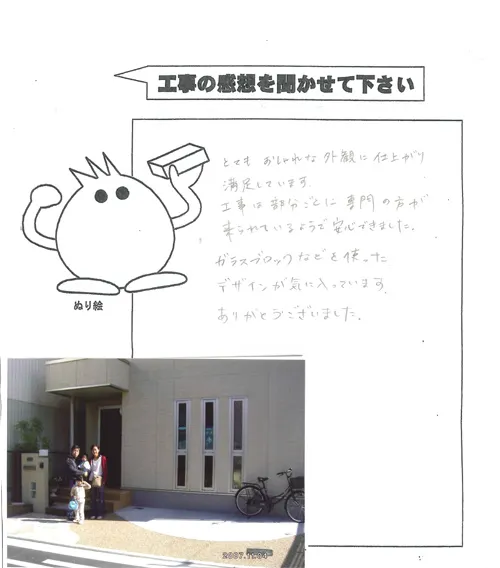 工事の感想を聞かせて下さい
とても おしゃれな 外観に 仕上がり
満足しています.
工事は部分ごとに 専門の方が
来られているようで安心できました.
ガラスブロックなどを使った
デザインが気に入っています.
ありがとうございました.
ぬり絵
2007.11.04